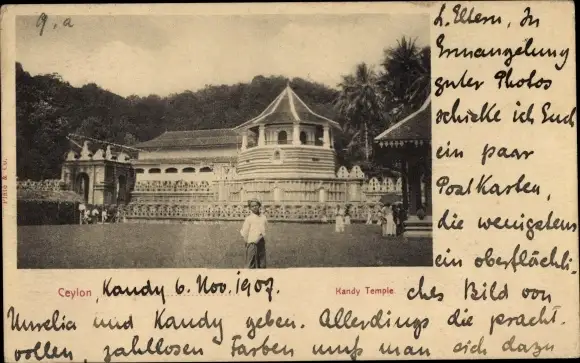 9. a
L. Eltern, In
Ermangelung
guter Photos
schicke ich Euch
ein paar
Postkarten,
die wenigstens
ein oberflächli-
Plâté & Co.
Ceylon, Kandy 6. Nov. 1907.
Kandy Temple.
ches Bild von
Nurelia und Kandy geben. Allerdings die pracht-
vollen, zahllosen Farben muß man sich dazu